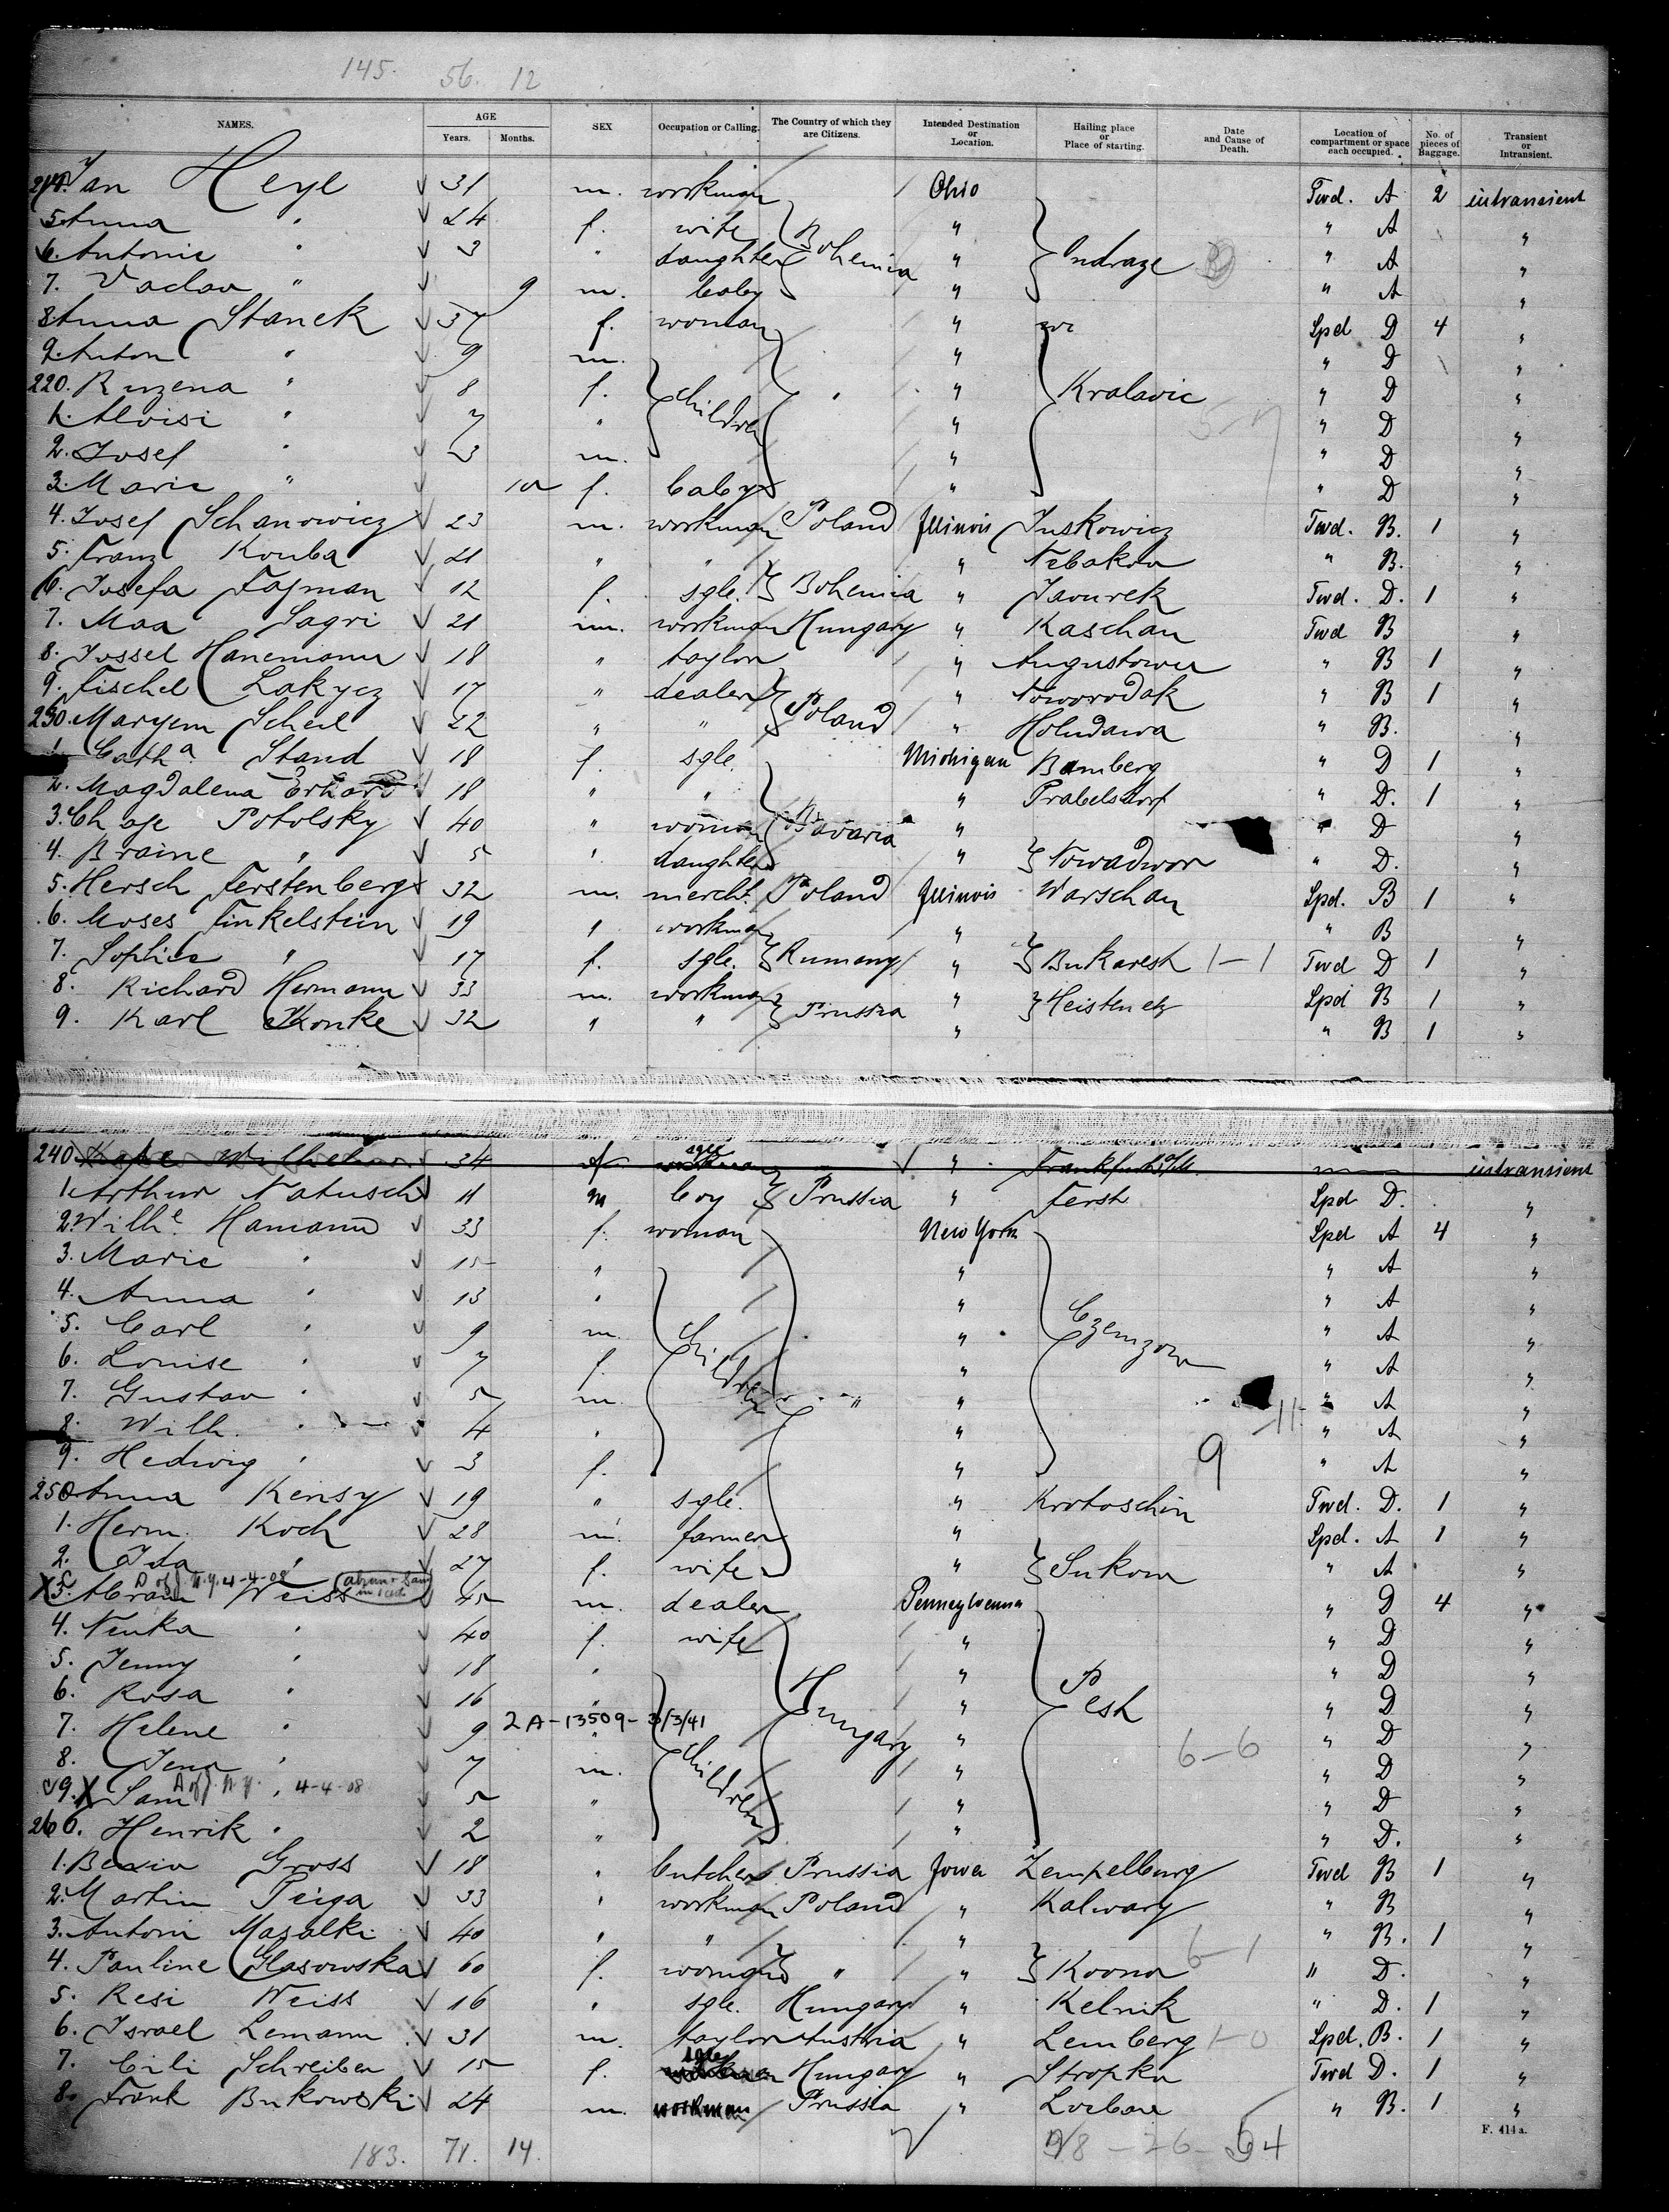 145. 56. 12
NAMES. AGE Years. Months. SEX Occupation or Calling. The Country of which they are Citizens. Intended Destination or Location. Hailing place or Place of starting. Date and Cause of Death. Location of compartment or space each occupied. No. of pieces of Baggage. Transient or Intransient.
214. Jan Heyl 31 m. workman Ohio Twd. A 2 intransient
5. Anna " 24 f. wife Bohemia " Ondraze " A "
6. Antonie " 3 " daughter " " A "
7. Vaclav " 9 m. baby " " A "
8. Anna Stanek 37 f. woman " Spd D 4 "
9. Anton " 9 m. " " D "
220. Ruzena " 8 f. children " " Kralavic " D "
1. Aloisi " 7 " " " D "
2. Josef " 3 m. " " D "
3. Marie " 10 f. baby " " D "
4. Josef Schanowicz 23 m. workman Poland Illinois Juskowicz Twd. B. 1 "
5. Franz Kouba 21 " " " Nebakov " B. "
6. Josefa Fajman 12 f. sgle. Bohemia " Javurek Twd. D. 1 "
7. Maa Sagri 21 m. workman Hungary " Kaschau Twd B "
8. Jossel Hanemann 18 " taylor " Augustowu " B 1 "
9. Fischel Lakycz 17 " dealer Poland " Noworodak " B 1 "
230. Maryem Scheil 22 " " " Holudawa " B. "
1. Cath a Stand 18 f. sgle. Michigan Bamberg " D 1 "
2. Magdalena Erhard 18 " " " Prabelsdorf " D. 1 "
3. Chaje Potolsky 40 " woman Bavaria " " D "
4. Braine " 5 " daughter " Nowadwor " D. "
5. Hersch Ferstenberg 32 m. mercht. Poland Illinois Warschau Spd. B 1 "
6. Moses Finkelstein 19 " workman " " B "
7. Sophie " 17 f. sgle. Rumany " Bukaresh 1-1 Twd D 1 "
8. Richard Hermann 33 m. workman Prussia " Heistenetz Spd B 1 "
9. Karl Konke 32 " " " " B 1 "
240 Wilhelm 34 sgle " Frankfurt a/M. intransient
1. Arthur Natusch 11 m boy Prussia " Fersh Spd D. "
2. Wilhe Hamann 33 f. woman New York Spd A 4 "
3. Marie " 15 " " " A "
4. Anna " 13 " " " A "
5. Carl " 9 m. children " Czemzow " A "
6. Louise " 7 f. " " A "
7. Gustav " 5 m. " " " A "
8. Wilh. " 4 " " 11 " A "
9. Hedwig " 3 f. " 9 " A "
250 Anna Kensy 19 " sgle. " Krotoschin Twd. D. 1 "
1. Herm. Koch 28 m. farmer " Spd. A 1 "
2. Ida " 27 f. wife " Sukow " A "
D of J. N.Y. 4-4-08
X3. Abram Weiss 45 m. dealer Pennsylvania " D 4 "
4. Nenka " 40 f. wife " " D "
5. Jenny " 18 " " " D "
6. Rosa " 16 " Hungary " Pesh " D "
7. Helene " 9 2A-13509-3/3/41 " " " D "
8. Jena " 7 m. children " 6-6 " D "
9. X Sam " 4-4-08 5 " " " D "
260. Henrik " 2 " " " D. "
1. Gross 18 " butcher Prussia Jowa Zempelburg Twd B 1 "
2. Martin Peiga 33 " workman Poland " Kalwary " B "
3. Antoni Mazalki 40 " " " " B. 1 "
4. Pauline Glasowska 60 f. woman " " Koono 6-1 " D. "
5. Resi Weiss 16 " sgle. Hungary " Kelnik " D. 1 "
6. Israel Lemann 31 m. taylor Austria " Lemberg 1-0 Spd. B. 1 "
7. Cili Schreiber 15 f. sgle Hungary " Stropka Twd D. 1 "
8. Frank Bukowski 24 m. workman Prussia " Loebau " B. 1 "
183. 71. 14. 98-26-54
F. 414a.